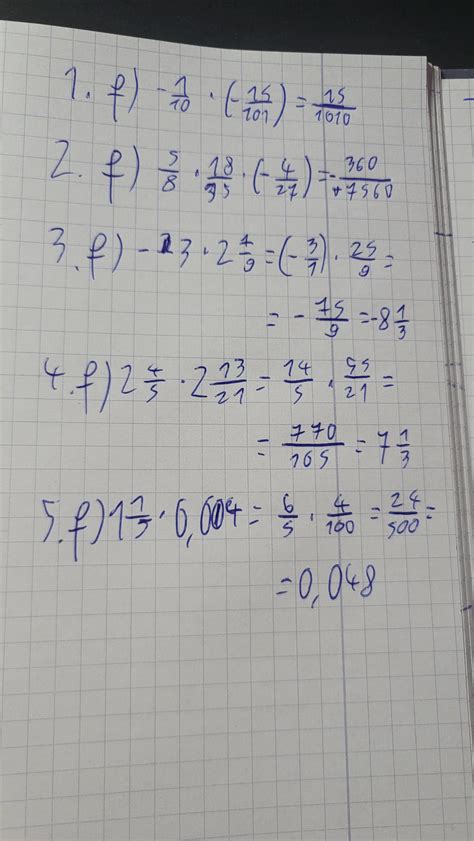 1. f) -1/10 · (-15/101) = 15/1010
2. f) 5/8 · 18/35 · (-4/27) = -360/7560
3. f) -3 · 2 7/9 = (-3/1) · 25/9 =
= -75/9 = -8 1/3
4. f) 2 4/5 · 2 13/21 = 14/5 · 55/21 =
= 770/105 = 7 1/3
5. f) 1 1/5 · 0,04 = 6/5 · 4/100 = 24/500 =
= 0,048